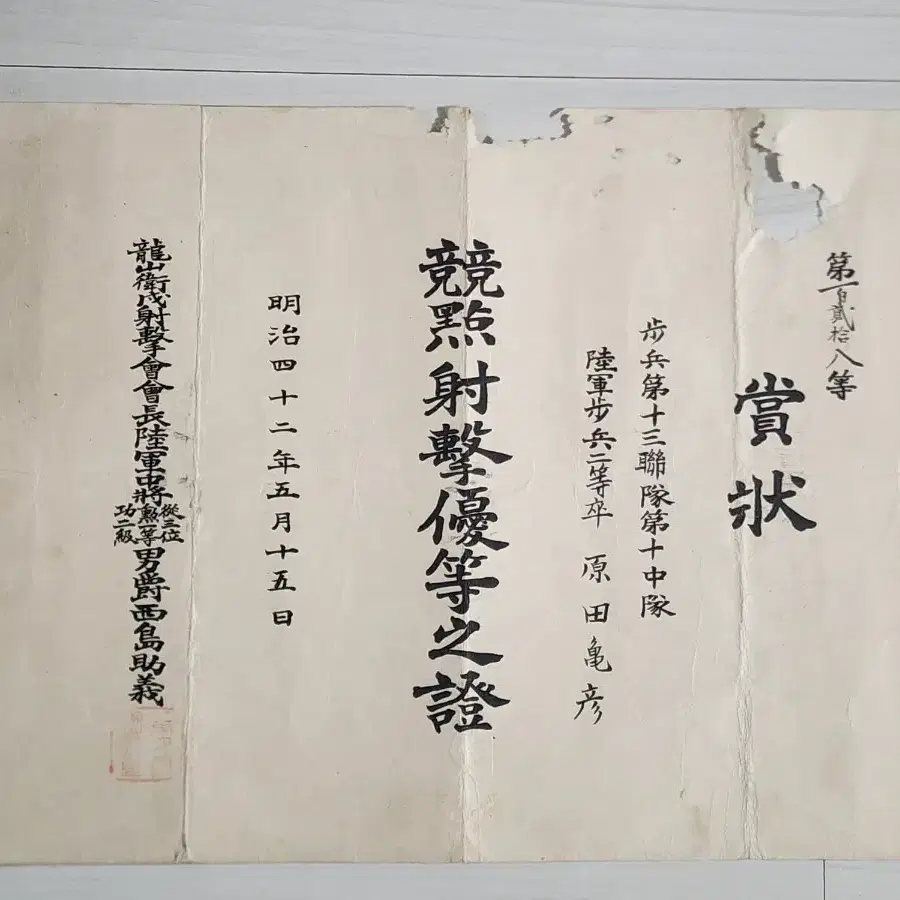 第一百貳拾八等
賞狀
步兵第十三聯隊第十中隊
陸軍步兵二等卒 原田亀彦
競點射擊優等之證
明治四十二年五月十五日
龍山衛戍射擊會會長陸軍中將從三位勲一等功二級男爵西島助義